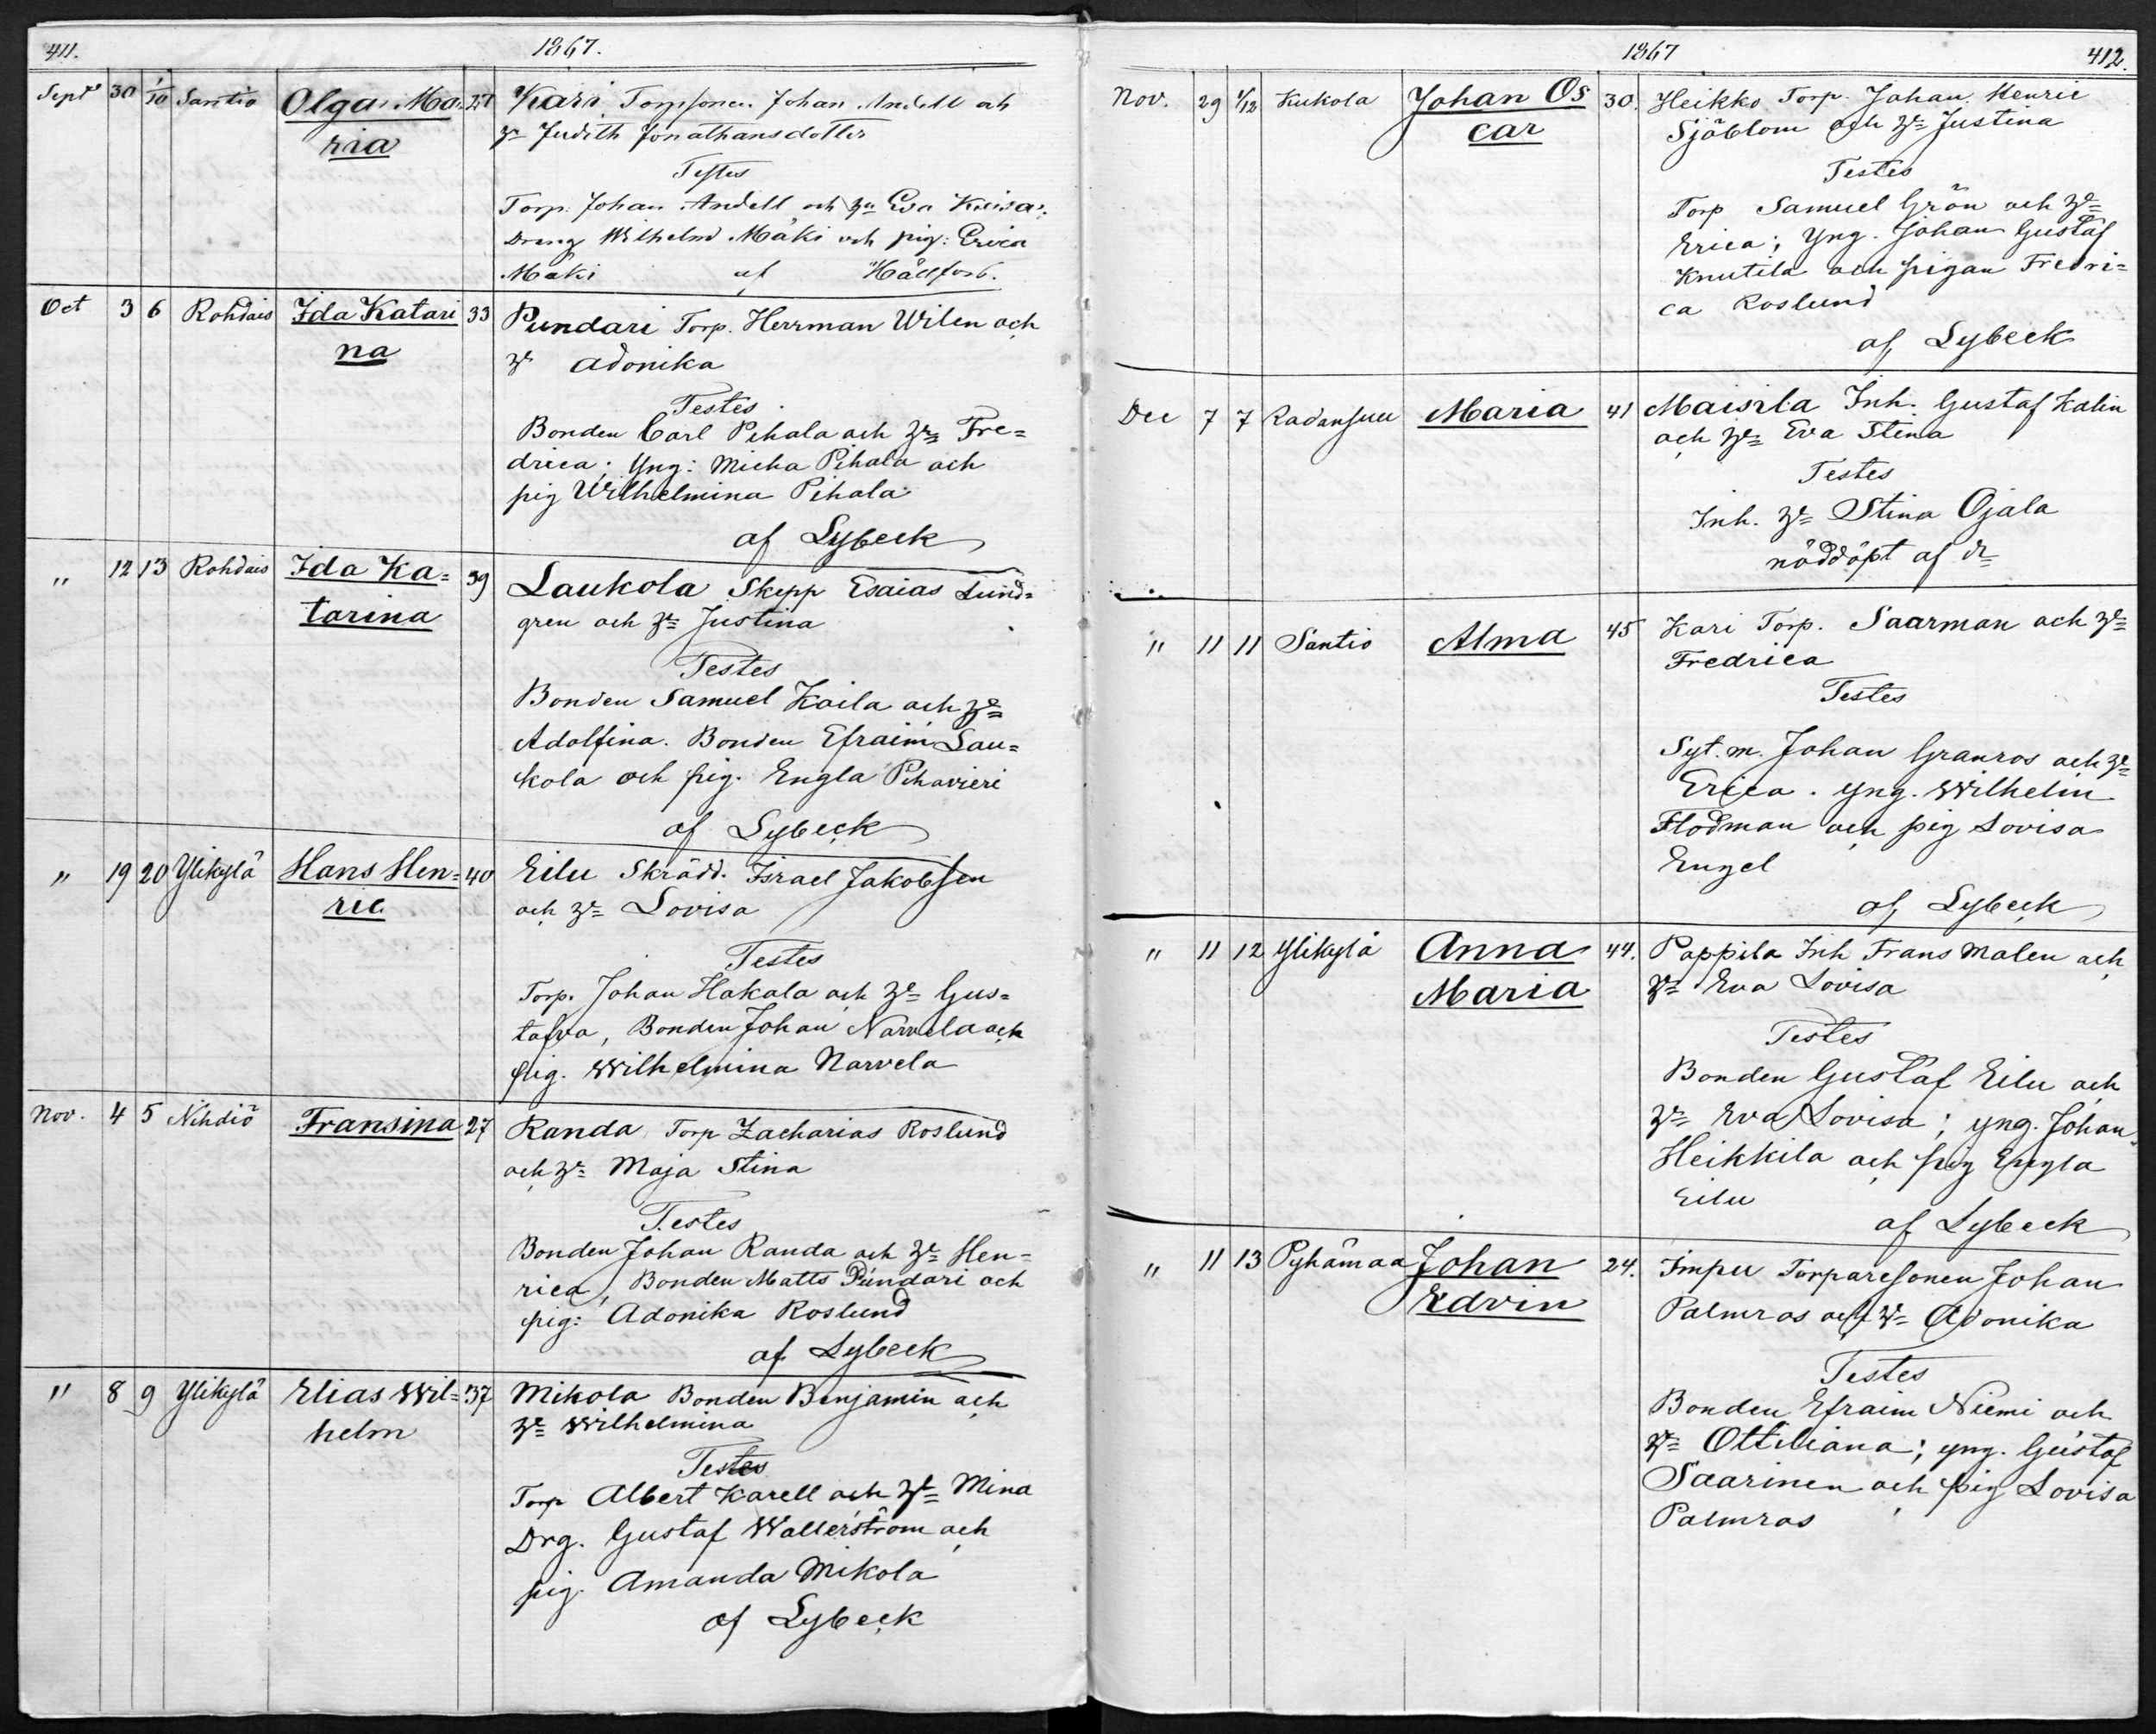 411. 1867.
Sept 30 1/10 Santio Olga Ma- 27 Kari Torpsonen Johan Andell och
ria hu Judith Jonathansdotter
Testes
Torp. Johan Andell och hu Eva
Dräng Wilhelm Mäki och pig: Erica
Mäki af Hällfors.
Oct 3 6 Rohdais Ida Katari 33 Pundari Torp. Herrman Wilen och
na Adonika
Testes
Bonden Carl Pihala och Fre=
drica; Yng: Micha Pihala och
pig Wilhelmina Pihala
af Lybeck
" 12 13 Rohdais Ida Ka= 39 Laukola Skepp Esaias Lund=
tarina gren och Justina
Testes
Bonden Samuel Kaila och
Adolfina. Bonden Efraim Lau=
kola och pig. Engla Pihavieri
af Lybeck
" 19 20 Ylikylä Hans Hen= 40 Eilu Skrädd. Israel Jakobsson
ric och Lovisa
Testes
Torp. Johan Hakala och Gus=
tafva, Bonden Johan Narvela och
pig. Wilhelmina Narvela
Nov. 4 5 Nihdiö Fransina 27 Randa Torp Zacharias Roslund
och Maja Stina
Testes
Bonden Johan Randa och Hen=
rica, Bonden Matts Pundari och
pig: Adonika Roslund
af Lybeck
" 8 9 Ylikylä Elias Wil= 37 Mikola Bonden Benjamin och
helm Wilhelmina
Testes
Torp Albert Karell och Mina
Drg. Gustaf Wallerström och
pig. Amanda Mikola
af Lybeck
1867 412.
Nov. 29 1/12 Kukola Johan Os 30. Heikko Torp. Johan Henric
car Sjöblom och Justina
Testes
Torp Samuel Grön och
Erica; Yng. Johan Gustaf
Knutila och pigan Fredri=
ca Roslund
af Lybeck
Dec 7 7 Radansuu Maria 41 Maisila Inh. Gustaf Kalin
och Eva Stina
Testes
Inh. Stina Ojala
nöddöpt af
" 11 11 Santio Alma 45 Kari Torp. Saarman och
Fredrica
Testes
Syt. m. Johan Granros och
Erica. yng. Wilhelm
Flodman och pig Lovisa
Engel
af Lybeck
" 11 12 Ylikylä Anna 44. Pappila Inh Frans Malen och
Maria Eva Lovisa
Testes
Bonden Gustaf Eilu och
Eva Lovisa; yng. Johan
Heikkila och pig Engla
Eilu
af Lybeck
" 11 13 Pyhämaa Johan 24. Impu Torparesonen Johan
Edvin Palmros och Adonika
Testes
Bonden Efraim Niemi och
Ottiliana; yng. Gustaf
Saarinen och pig Lovisa
Palmros